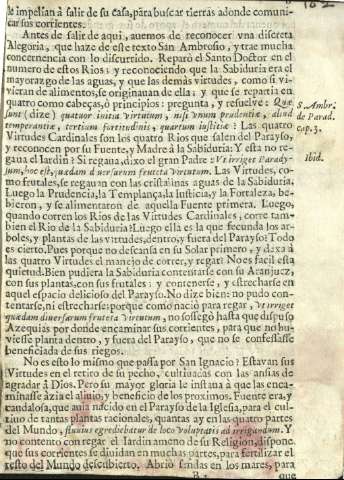 162
le impelian à salir de su casa, para buscar tierras adonde comuni-
car sus corrientes.
Antes de salir de aqui, auemos de reconocer vna discreta
Alegoria, que haze de este texto San Ambrosio, y trae mucha
concernencia con lo discurtido. Reparò el Santo Doctor en el
numero de estos Rios; y reconociendo que la Sabiduria era el
mayorazgo de las aguas, y que las demàs virtudes, como si vi-
vieran de alimentos, se originauan de ella; y que se repartia en
quatro como cabeças, ò principios: pregunta, y resuelve: Quæ
sunt (dize) quatuor initia virtutum, nisi vnum prudentiæ, aliud
temperantiæ, tertium fortitudini, quartum iustitiæ? Las quatro
Virtudes Cardinales son los quatro Rios que salen del Parayso,
y reconocen por su Fuente, y Madre à la Sabiduria: Y esta no re-
gaua el Iardin? Si regaua, dixo el gran Padre: Vt irriget Parady-
sum, hoc est, quædam diuersarum fructeta Virtutum. Las Virtudes, co-
mo frutales, se regauan con las cristalinas aguas de la Sabiduria.
Luego la Prudencia, la Templança, la Iusticia, y la Fortaleza, be-
bieron, y se alimentaron de aquella Fuente primera. Luego,
quando corren los Rios de las Virtudes Cardinales, corre tam-
bien el Rio de la Sabiduria? Luego ella es la que fecunda los ar-
boles, y plantas de las virtudes, dentro, y fuera del Parayso? Todo
es cierto. Pues porque no descansa en su Solar primero, y dexa à
las quatro Virtudes el manejo de correr, y regar? No es facil esta
quietud. Bien pudiera la Sabiduria contentarse con su Aranjuez,
con sus plantas, con sus frutales: y contenerse, y estrecharse en
aquel espacio delicioso del Parayso. No dize bien: no pudo con-
tentarse, ni estrecharse: porque como naciò para regar, Vt irriget
quædam diuersarum fructeta Virtutum, no sossegò hasta que dispuso
Azequias por donde encaminar sus corrientes, para que no hu-
viesse planta dentro, y fuera del Parayso, que no se confessasse
beneficiada de sus riegos.
No es esto lo mismo que passa por San Ignacio? Estavan sus
Virtudes en el retiro de su pecho, cultivadas con las ansias de
agradar à Dios. Pero su mayor gloria le instaua à que las enca-
minasse àzia el alivio, y beneficio de los proximos. Fuente era, y
caudalosa, que auia nacido en el Parayso de la Iglesia, para el cul-
tiuo de tantas plantas racionales, quantas ay en las quatro partes
del Mundo, fluuius egrediebatur de loco Voluptatis ad irrigandum. Y
no contento con regar el Iardin ameno de su Religion, dispone,
que sus corrientes se diuidan en muchas partes, para fertilizar el
resto del Mundo descubierto. Abriò sendas en los mares, para
B
que
S. Ambr.
de Parad.
cap. 3.
Ibid.